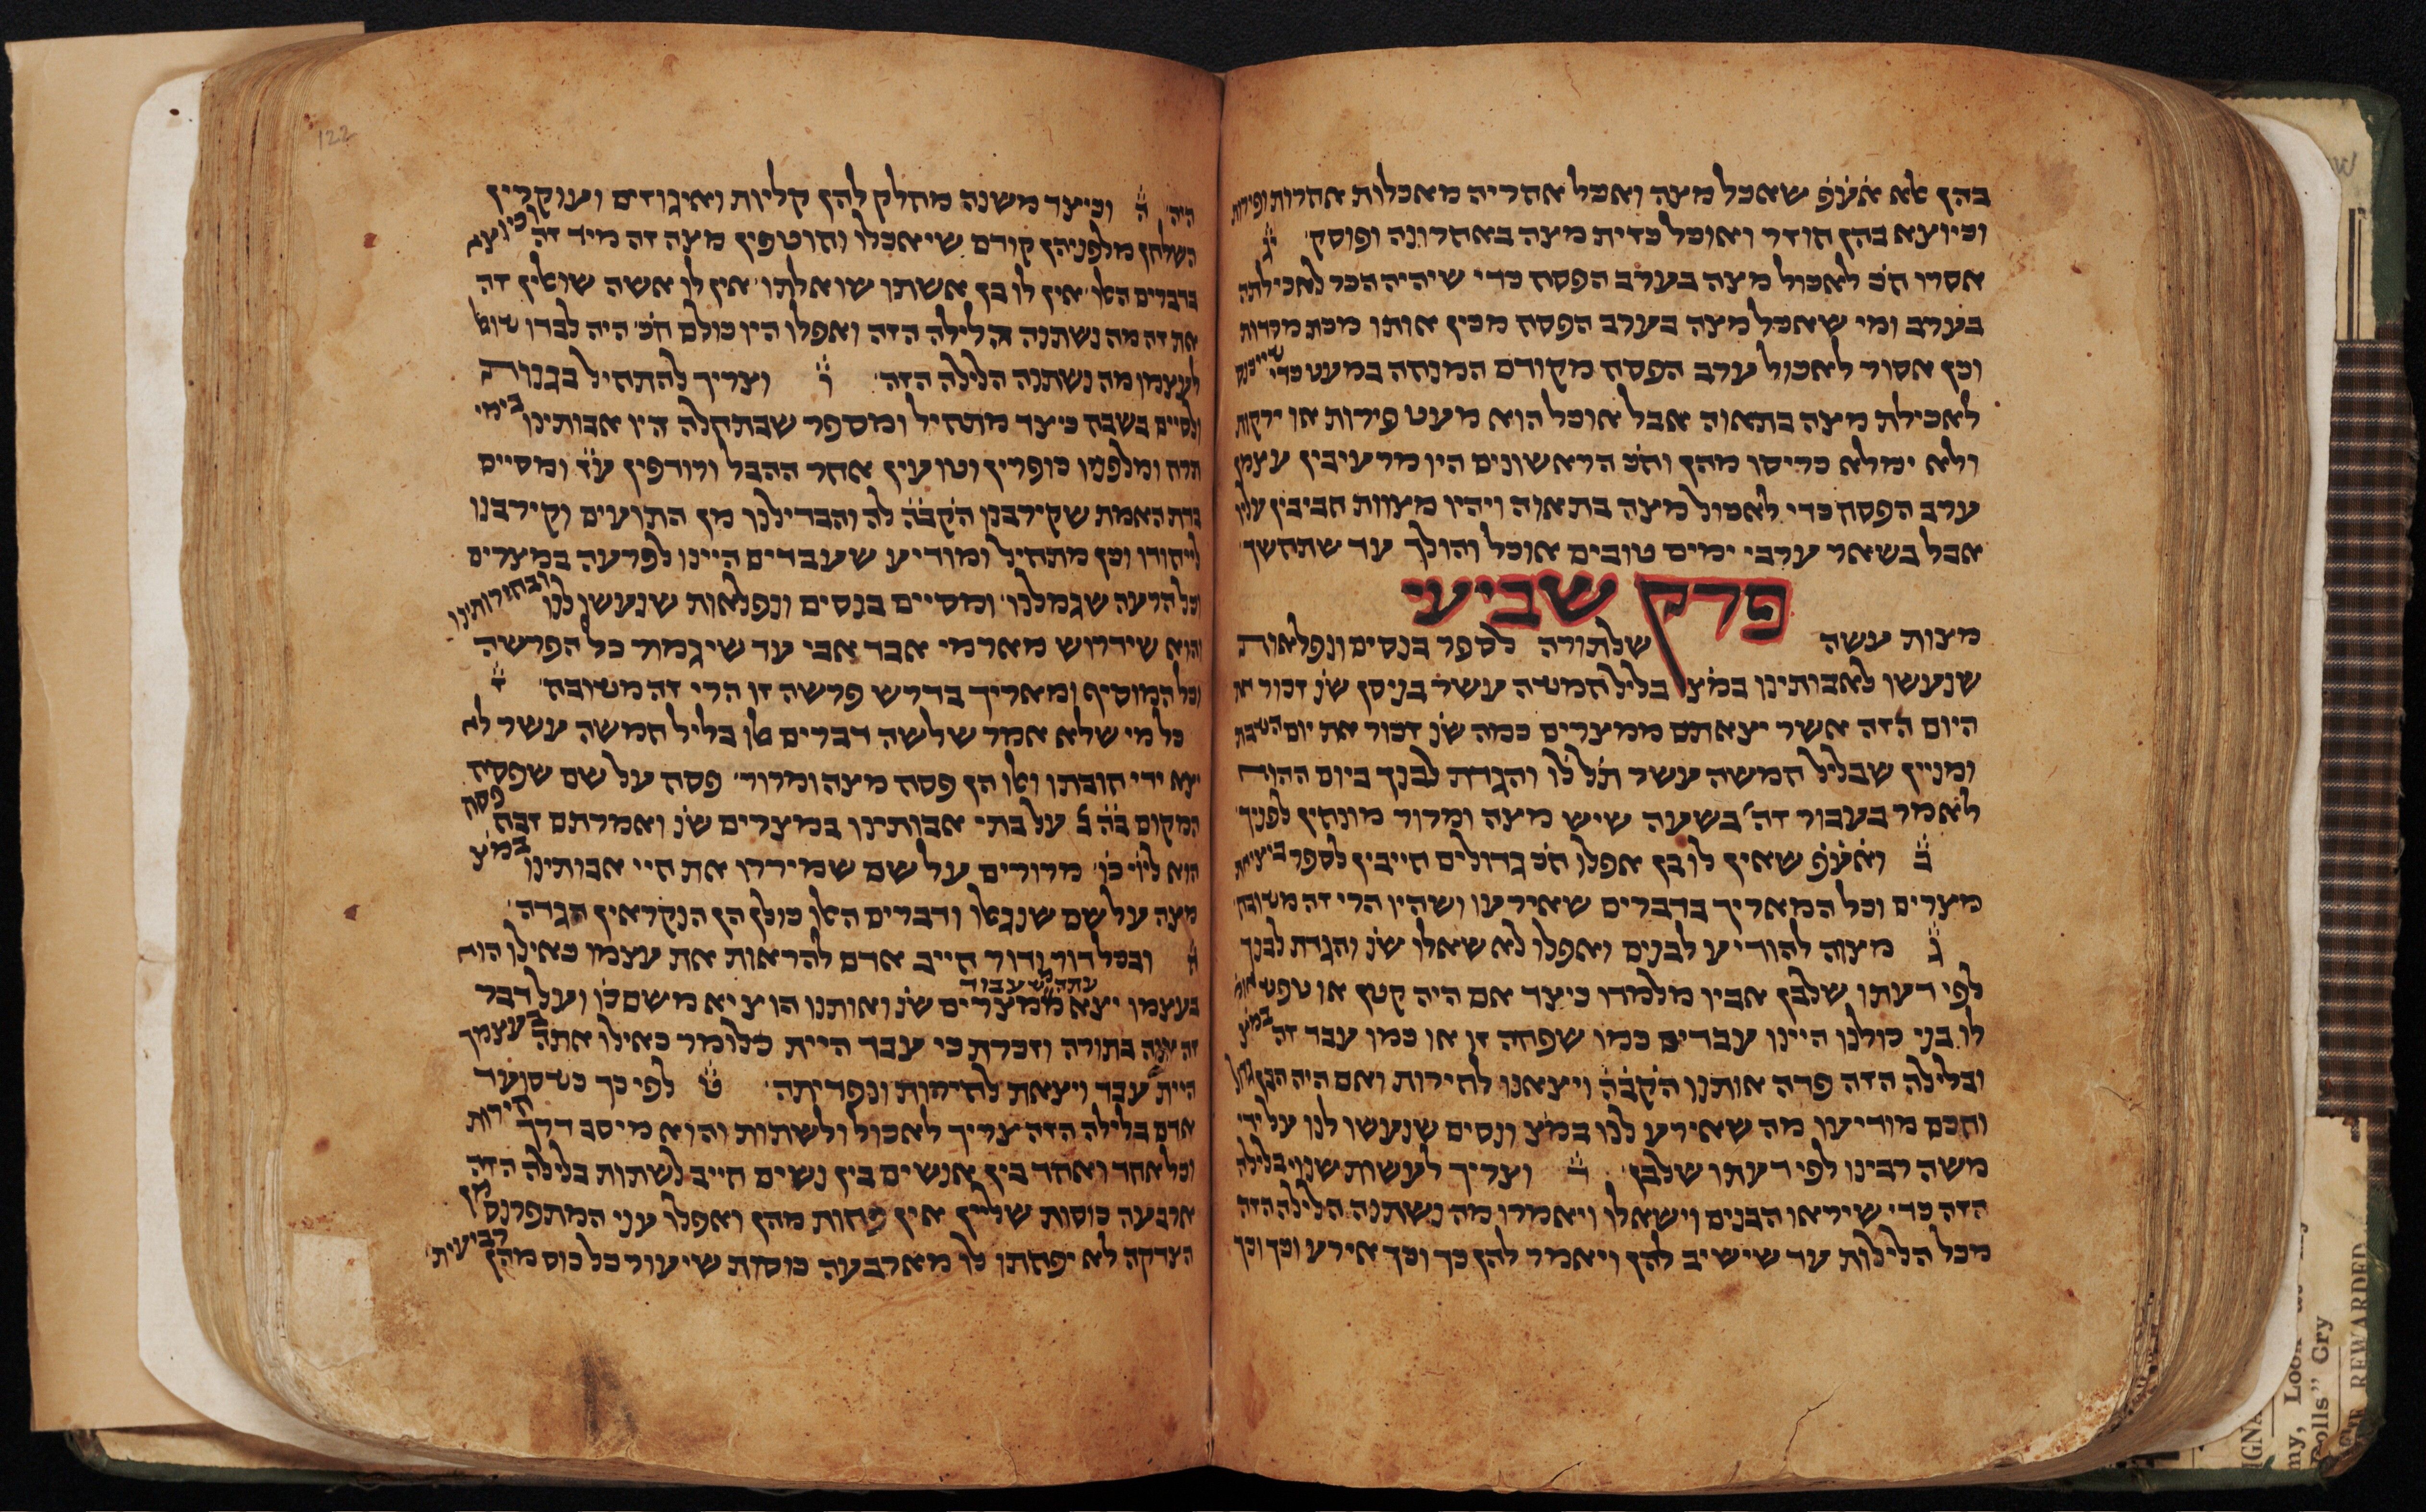 בהן אלא אע̇פ̇ שאכל מצה ואכל אחריה מאכלות אחרות ופירות
וכיוצא בהן חוזר ואוכל כזית מצה באחרונה ופוסק׳ יב̈
אסרו חכ̇ לאכול מצה בערב הפסח כדי שיהיה הכר לאכילתה
בערב ומי שאכל מצה בערב הפסח מכין אותו מכת מרדות
וכן אסור לאכול ערב הפסח מקודם המנחה במעט כדי שייכנס
לאכילת מצה בתאוה אבל אוכל הוא מעט פירות או ירקות
ולא ימלא כריסו מהן וחכ̇ הראשונים היו מרעיבין עצמן
ערב הפסח כדי לאכול מצה בתאוה ויהיו מצוות חביבין עליו
אבל בשאר ערבי ימים טובים אוכל והולך עד שתחשך
פרק שביעי
מצות עשה שלתורה לספר בנסים ונפלאות
שנעשו לאבותינו במצ̇ בליל חמשה עשר בניסן שנ̇ זכור את
היום הזה אשר יצאתם ממצרים כמה שנ̇ זכור את יום השבת
ומניין שבליל חמשה עשר תל̇ לו̇ והגדת לבנך ביום ההוא
לאמר בעבור זה׳ בשעה שיש מצה ומרור מונחין לפניך
ב̈ ואע̇פ̇ שאין לו בן אפלו חכ̇ גדולים חייבין לספר ביציאת
מצרים וכל המאריך בדברים שאירעו ושהיו הרי זה משובח
ג̈ מצוה להודיע לבנים ואפלו לא שאלו שנ̇ והגדת לבנך
לפי דעתו שלבן אביו מלמדו כיצד אם היה קטן או טפש אומ̇
לו בני כולנו היינו עבדים כמו שפחה זו או כמו עבד זה במצ̇
ובלילה הזה פדה אותנו הקב̇ה̇ ויצאנו לחירות ואם היה הבן גדול
וחכם מודיעו מה שאירע לנו במצ̇ ונסים שנעשו לנו על ידי
משה רבינו לפי דעתו שלבן׳ ד̈ וצריך לעשות שנוי בלילה
הזה כדי שיראו הבנים וישאלו ויאמרו מה נשתנה הלילה הזה
מכל הלילות עד שישיב להן ויאמר להן כך וכך אירע וכך וכך
היה׳ ה̈ וכיצד משנה מחלק להן קליות ואיגוזים ועוקרין
השלחן מלפניהן קודם שיאכלו וחוטפין מצה זה מיד זה וכיוצא
בדברים האלו׳ אין לו בן אשתו שואלתו׳ אין לו אשה שואלין זה
את זה מה נשתנה הלילה הזה ואפלו היו כולם חכ̇ היה לבדו שואל
לעצמו מה נשתנה הלילה הזה׳ ו̈ וצריך להתחיל בגנות
ולסיים בשבח כיצד מתחיל ומספר שבתחלה היו אבותינו בימי
תרח ומלפניו כופרין וטועין אחר ההבל ורודפין ע̇ז̇ ומסיים
בדת האמת שקירבנו הקב̇ה̇ לה והבדילנו מן התועים וקירבנו
לייחודו וכן מתחיל ומודיע שעבדים היינו לפרעה במצרים
וכל הרעה שגמלנו׳ ומסיים בנסים ונפלאות שנעשו לנו ובחירותינו
והוא שידרוש מארמי אבד אבי עד שיגמור כל הפרשה
וכל המוסיף ומאריך בדרש פרשה זו הרי זה משובח׳ ז̈
כל מי שלא אמר שלשה דברים אלו בליל חמשה עשר לא
יצא ידי חובתו ואלו הן פסח מצה ומרור׳ פסח על שם שפסח
המקום ב̇ה̇ על בתי אבותינו במצרים שנ̇ ואמרתם זבח פסח
הוא ליי̇ כו̇׳ מרורים על שם שמיררו את חיי אבותינו במצ̇
מצה על שם שנגאלו ודברים האלו כולן הן הנקראין הגדה׳
ח̈ ובכל דור ודור חייב אדם להראות את עצמו כאילו הוא
עתה משעבוד
בעצמו יצא ממצרים שנ̇ ואותנו הוציא משם כו̇ ועל דבר
זה צוה בתורה וזכרת כי עבד היית כלומר כאילו אתה בעצמך
היית עבד ויצאת לחירות ונפדיתה׳ ט̈ לפי כך כשסועד
אדם בלילה הזה צריך לאכול ולשתות והוא מיסב דרך חירות
וכל אחד ואחד בין אנשים בין נשים חייב לשתות בלילה הזה
ארבעה כוסות שליין אין פחות מהן ואפלו עני המתפרנס מן
הצדקה לא יפחתו לו מארבעה כוסות שיעור כל כוס מהן רביעית׳
122
REWARDED
Cry